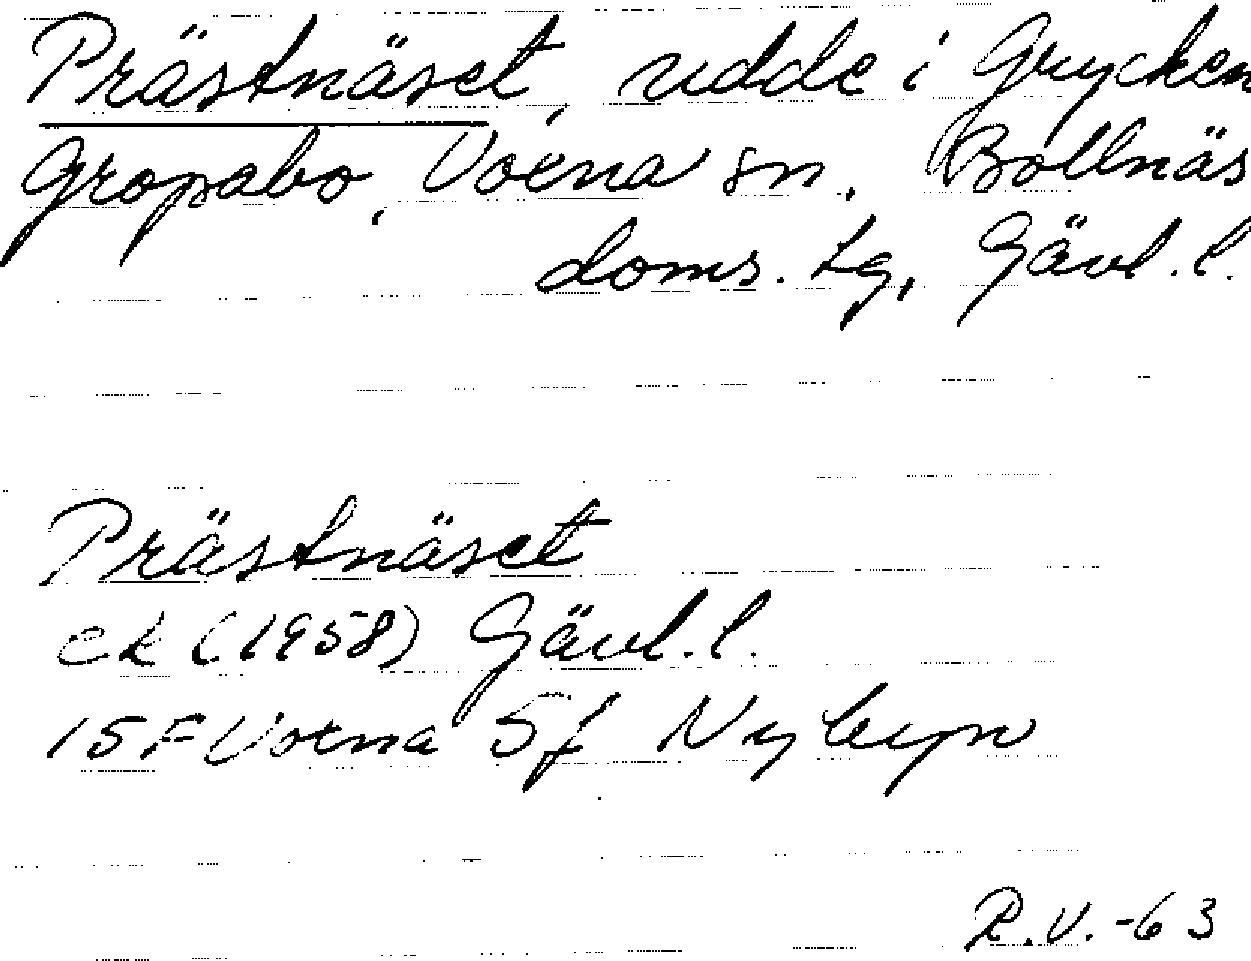 Prästnäset, udde i Grycken
Gropabo, Voxna sn, Bollnäs
doms. tg, Gävl. l.
Prästnäset
ek (1958) Gävl. l.
15 F Voxna 5f Nybyn
R.V. -63